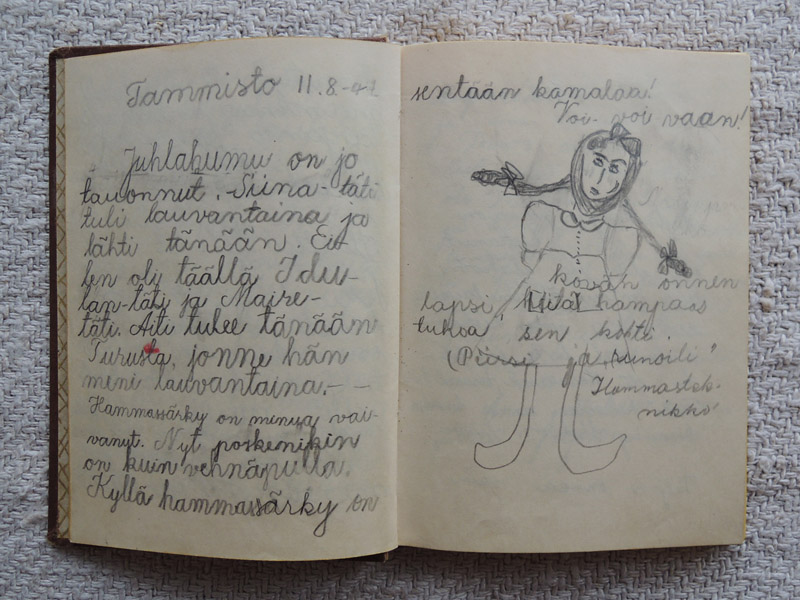 Tammisto 11.8.-41
Juhlahumu on jo
tauonnut. Siina-täti
tuli lauvantaina ja
lähti tänään. Ei-
len oli täällä Idu-
lan-täti ja Maire-
täti. Äiti tulee tänään
Turusta, jonne hän
meni lauvantaina. - -
Hammassärky on minua vai-
vanut. Nyt poskenikin
on kuin vehnäpulla.
Kyllä hammassärky on
sentään kamalaa!
Voi-voi vaan!
kovan onnen
lapsi, hampaas
tukoa sen koitti.
(Piirsi ja runoili"
Hammastek-
nikko"